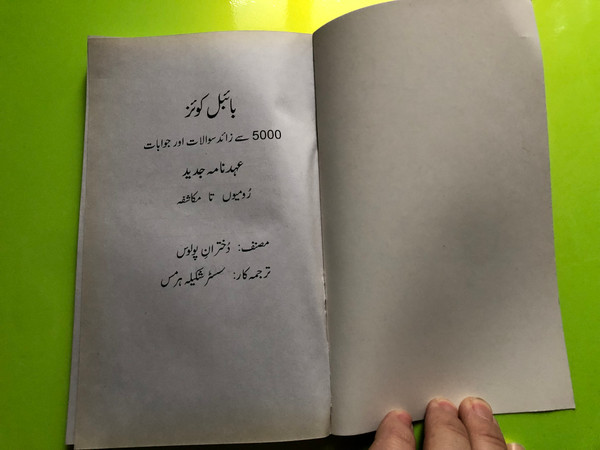 بائبل کوئز
5000 سے زائد سوالات اور جوابات
عہد نامہ جدید
رُومیوں تا مکاشفہ
مصنف: دُخترانِ پولوس
ترجمہ کار: سسٹر شکیلہ ہرمس